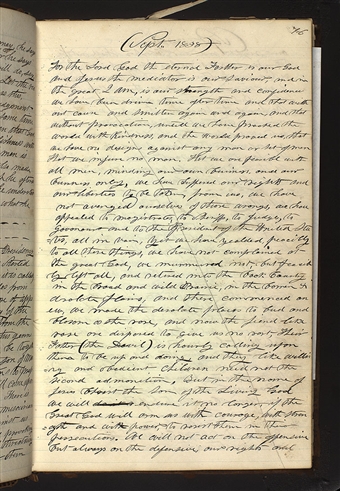 (Sept. 1838)
For the Lord God the eternal Father is our God
and Jesus the mediator is our Saviour, and in
the great I am, is our strength and confidence
we have been driven time after time and that with
out cause and smitten again and again, and that
without provocation, until we have proved the
world with Kindness, and the world proved us, that
we have no designs against any man or set of men
that we injure no man, that we are peaceable with
all men, minding our own business, and our
business only, we have suffered our rights and
our liberties to be taken from us, we have
not avenged ourselves of those wrongs, we have
appealed to magistrates, to sheriffs, to judges, to
governors and to the President of the United Sta
tes, all in vain, yet we have yealded, peacibly
to all these things, we have not complained at
the great God, we murmured not, but peacea
bly left all, and retired into the back Country
in the broad and wild Prairie, in the barren &
desolate plains, and there commenced an
ew, we made the desolate places to bud and
blosom as the rose, and now the fiend like
race are disposed to give us no rest. Their
Father (the Devil) is hourly calling upon
them to be up and doing, and they like willin
ng and obedient children need not the
second admonition, But in the name of
Jesus Christ the Son of the Living God,
we will endure it no longer, if the
Great God will arm us with courage, with stren
gth and with power, to resist them in their
persecutions. We will not act on the offensive
but always on the defensive, our rights and